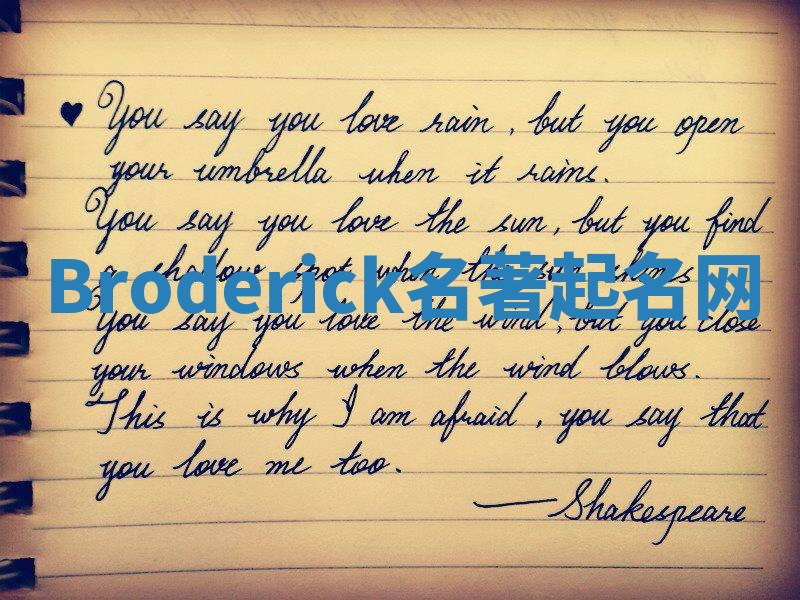 ♥ You say you love rain, but you open
your umbrella when it rains.
You say you love the sun, but you find
a shadow spot when the sun shines
Broderick名著起名网
You say you love the wind, but you close
your windows when the wind blows.
This is why I am afraid, you say that
you love me too.
— Shakespeare